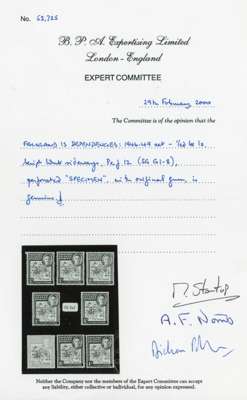 No. 62,725
B. P. A. Expertising Limited
London - England
EXPERT COMMITTEE
29th February 2000
The Committee is of the opinion that the
FALKLAND IS DEPENDENCIES: 1946-49 set - ½d to 1s
Script Wmk sideways, Perf 12 (SG G1-8),
perforated "SPECIMEN", with original gum, is
genuine.
A. F. Norris
Neither the Company nor the members of the Expert Committee can accept
any liability, either collective or individual, for any opinion expressed.